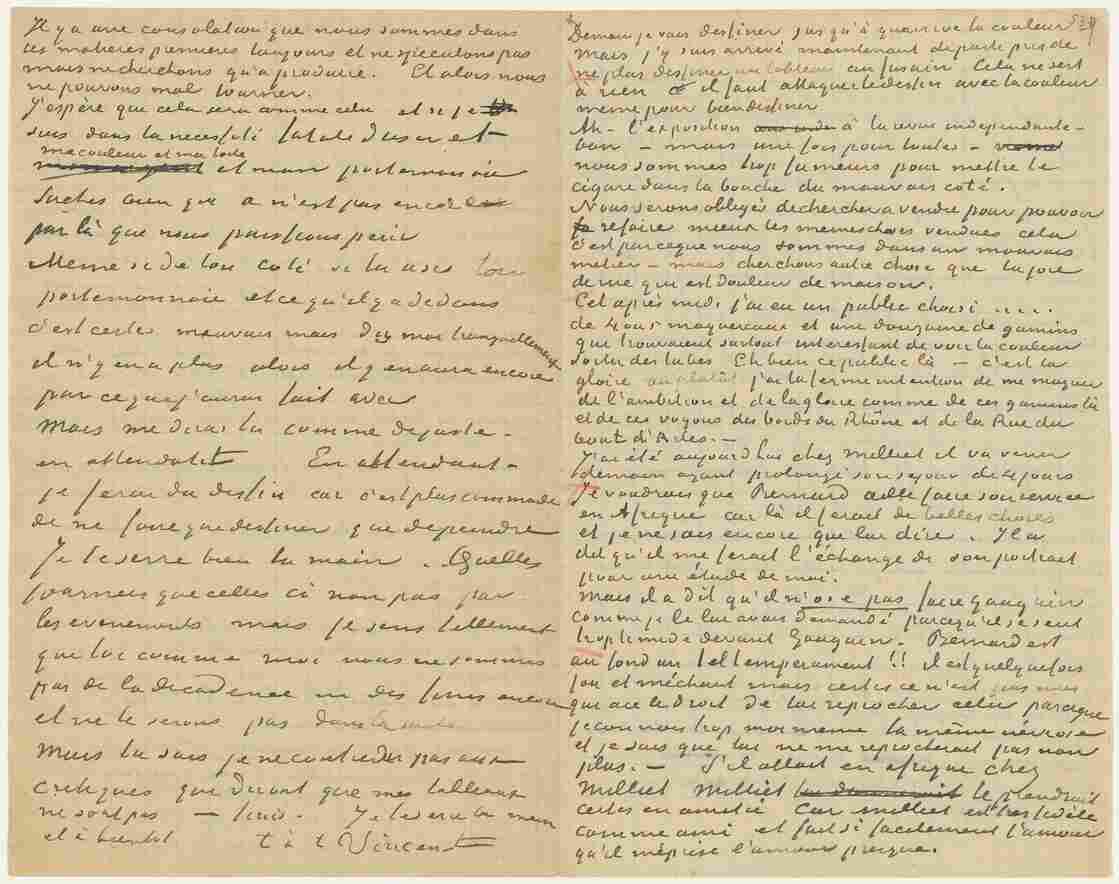 Il y a une consolation que nous sommes dans
les matieres premieres toujours et ne speculons pas
mais ne cherchons qu'a produire. Et alors nous
ne pouvons mal tourner.
J'espère que cela sera comme cela et si je
suis dans la necessité fatale d'user et
ma couleur et ma toile
et mon portemonnaie
saches bien que ce n'est pas encore
par là que nous puissions perir
Meme si de ton coté si tu uses ton
portemonnaie et ce qu'il y a dedans
c'est certes mauvais mais dis moi tranquillement
il n'y en a plus alors il y en aura encore
par ce que j'aurai fait avec
Mais me diras tu comme de juste –
en attendant En attendant –
je ferai du dessin car c'est plus commode
de ne faire que dessiner que de peindre
Je te serre bien la main . Quelles
journees que celles ci non pas par
les evenements mais je sens tellement
que toi comme moi nous ne sommes
pas de la decadence ni des finis encore
et ne le serons pas dans la suite
Mais tu sais je ne contredis pas aux
critiques qui diront que mes tableaux
ne sont pas — finis. Je te serre la main
et à bientot t à t Vincent
Demain je vais dessiner jusqu'à qu'arrive la couleur
Mais j'y suis arrivé maintenant de parti pris de
ne plus dessiner un tableau au fusain Cela ne sert
à rien il faut attaquer le dessin avec la couleur
meme pour bien dessiner
Ah – l'exposition à la revue independante –
bon – mais une fois pour toutes –
nous sommes trop fumeurs pour mettre le
cigare dans la bouche du mauvais coté.
Nous serons obligés de chercher a vendre pour pouvoir
refaire mieux les memes choses vendues cela
c'est parceque nous sommes dans un mauvais
metier – mais cherchons autre chose que la joie
de rue qui est douleur de maison.
Cet apres midi j'ai eu un public choisi ....
de 4 ou 5 maquereaux et une douzaine de gamins
qui trouvaient surtout interessant de voir la couleur
sortir des tubes Eh bien ce public là – c'est la
gloire ou plutôt j'ai la ferme intention de me moquer
de l'ambition et de la gloire comme de ces gamins là
et de ces voyous des bords du Rhône et de la Rue du
bout d'Arles. –
J'ai été aujourd'hui chez Milliet il va venir
demain ayant prolongé son sejour de 4 jours
Je voudrais que Bernard aille faire son service
en Afrique car là il ferait de belles choses
et je ne sais encore que lui dire. Il a
dit qu'il me ferait l'échange de son portrait
pour une étude de moi.
Mais il a dit qu'il n'ose pas faire Gauguin
comme je le lui avais demandé parcequ'il se sent
trop timide devant Gauguin. Bernard est
au fond un tel temperament !! il est quelquefois
fou et méchant mais certes ce n'est pas moi
qui ai le droit de lui reprocher cela parceque
je connais trop moi meme la même névrose
et je sais que lui ne me reprocherait pas non
plus. — S'il allait en afrique chez
Milliet Milliet le prendrait
certes en amitié car Milliet est tres fidèle
comme ami et fait si facilement l'amour
qu'il méprise l'amour presque.